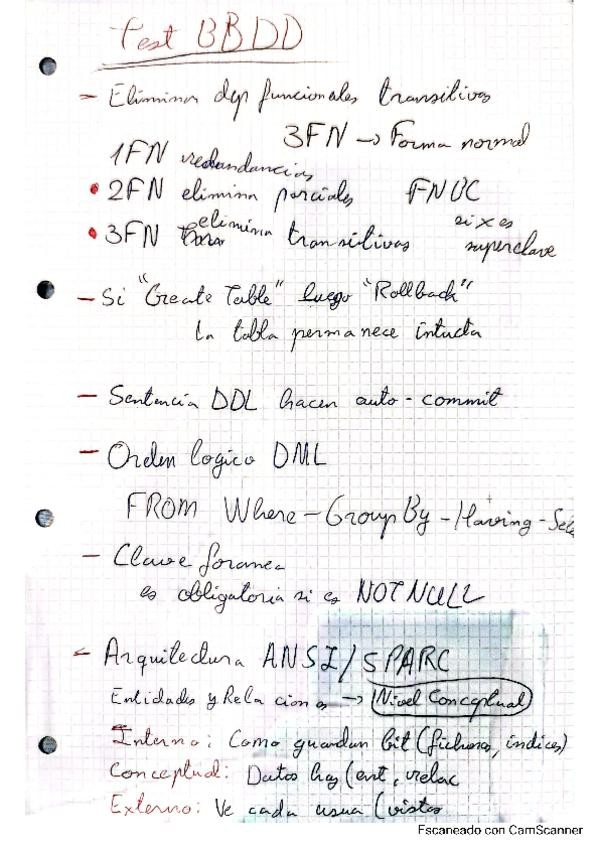 Test BBDD
- Eliminar dep funcionales transitivos
3FN → Forma normal
1FN redundancias
• 2FN elimina parciales FNBC
• 3FN elimina transitivas si x es superclave
- Si "Create Table" luego "Rollback"
La tabla permanece intacta
- Sentencia DDL hacen auto-commit
- Orden logico DML
FROM Where - Group By - Having - Sele
- Clave foranea
es obligatoria si es NOT NULL
- Arquitectura ANSI/SPARC
Entidades y Relaciones → Nivel Conceptual
Interno: Como guardan bit (ficheros, indices)
Conceptual: Datos hay (ent, relac
Externo: Ve cada usua (vistas
Escaneado con CamScanner